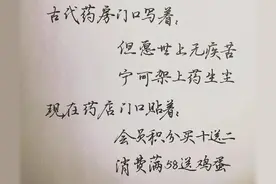 古代药房门口写着:
但愿世上无疾苦
宁可架上药生尘
现在药店门口贴着:
会员积分买十送二
消费满58送鸡蛋